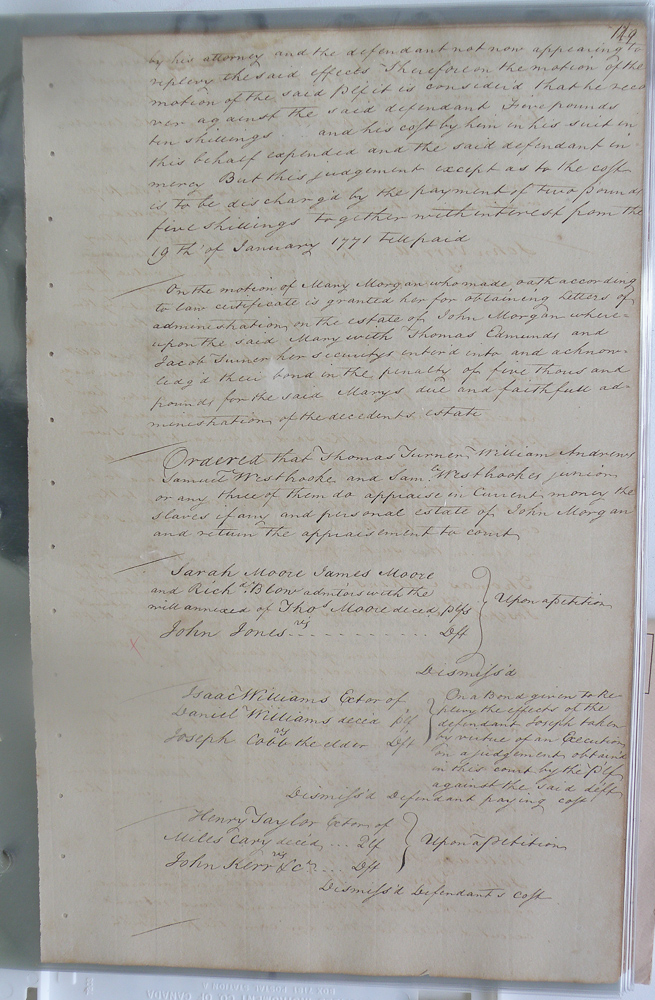 149
by his attorney and the defendant not now appearing to
replevy the said effects Therefore on the motion of the
motion of the said Plf it is consider'd that he reco
ver against the said defendant Five pounds
ten shillings and his cost by him in his suit in
this behalf expended and the said defendant in
mercy But this judgement except as to the cost
is to be discharg'd by the payment of two pounds
five shillings together with interest from the
19th of January 1771 till paid
On the motion of Mary Morgan who made oath according
to law certificate is granted her for obtaining letters of
administration on the estate of John Morgan where=
upon the said Mary with Thomas Edmunds and
Jacob Turner her securitys enter'd into and acknow-
ledg'd their bond in the penalty of five thousand
pounds for the said Marys due and faithfull ad-
ministration of the decedents estate
Ordered that Thomas Turner, William Andrews
Samuel Westbrooke and Saml. Westbrooke junior
or any three of them do appraise in Current money the
slaves if any and personal estate of John Morgan
and return the appraisement to court
Sarah Moore James Moore
and Richd. Blow admtors with the
will annexed of Thos. Moore deced, Plfs
vs
John Jones - - - - - - - - - - Dft
Upon a Petition
Dismiss'd
Isaac Williams Extor of
Daniel Williams deced Plf
vs
Joseph Cobb the elder Dft
On a Bond given to Re
plevy the effects of the
defendant Joseph taken
by virtue of an Execution
on a judgement obtain'd
in this court by the Plf
against the said deft
Dismiss'd Defendant paying cost
Henry Taylor Extor of
Miles Cary deced ... Plf
vs
John Kerr &c. ... Dft
Upon a Petition
Dismiss'd Defendants cost